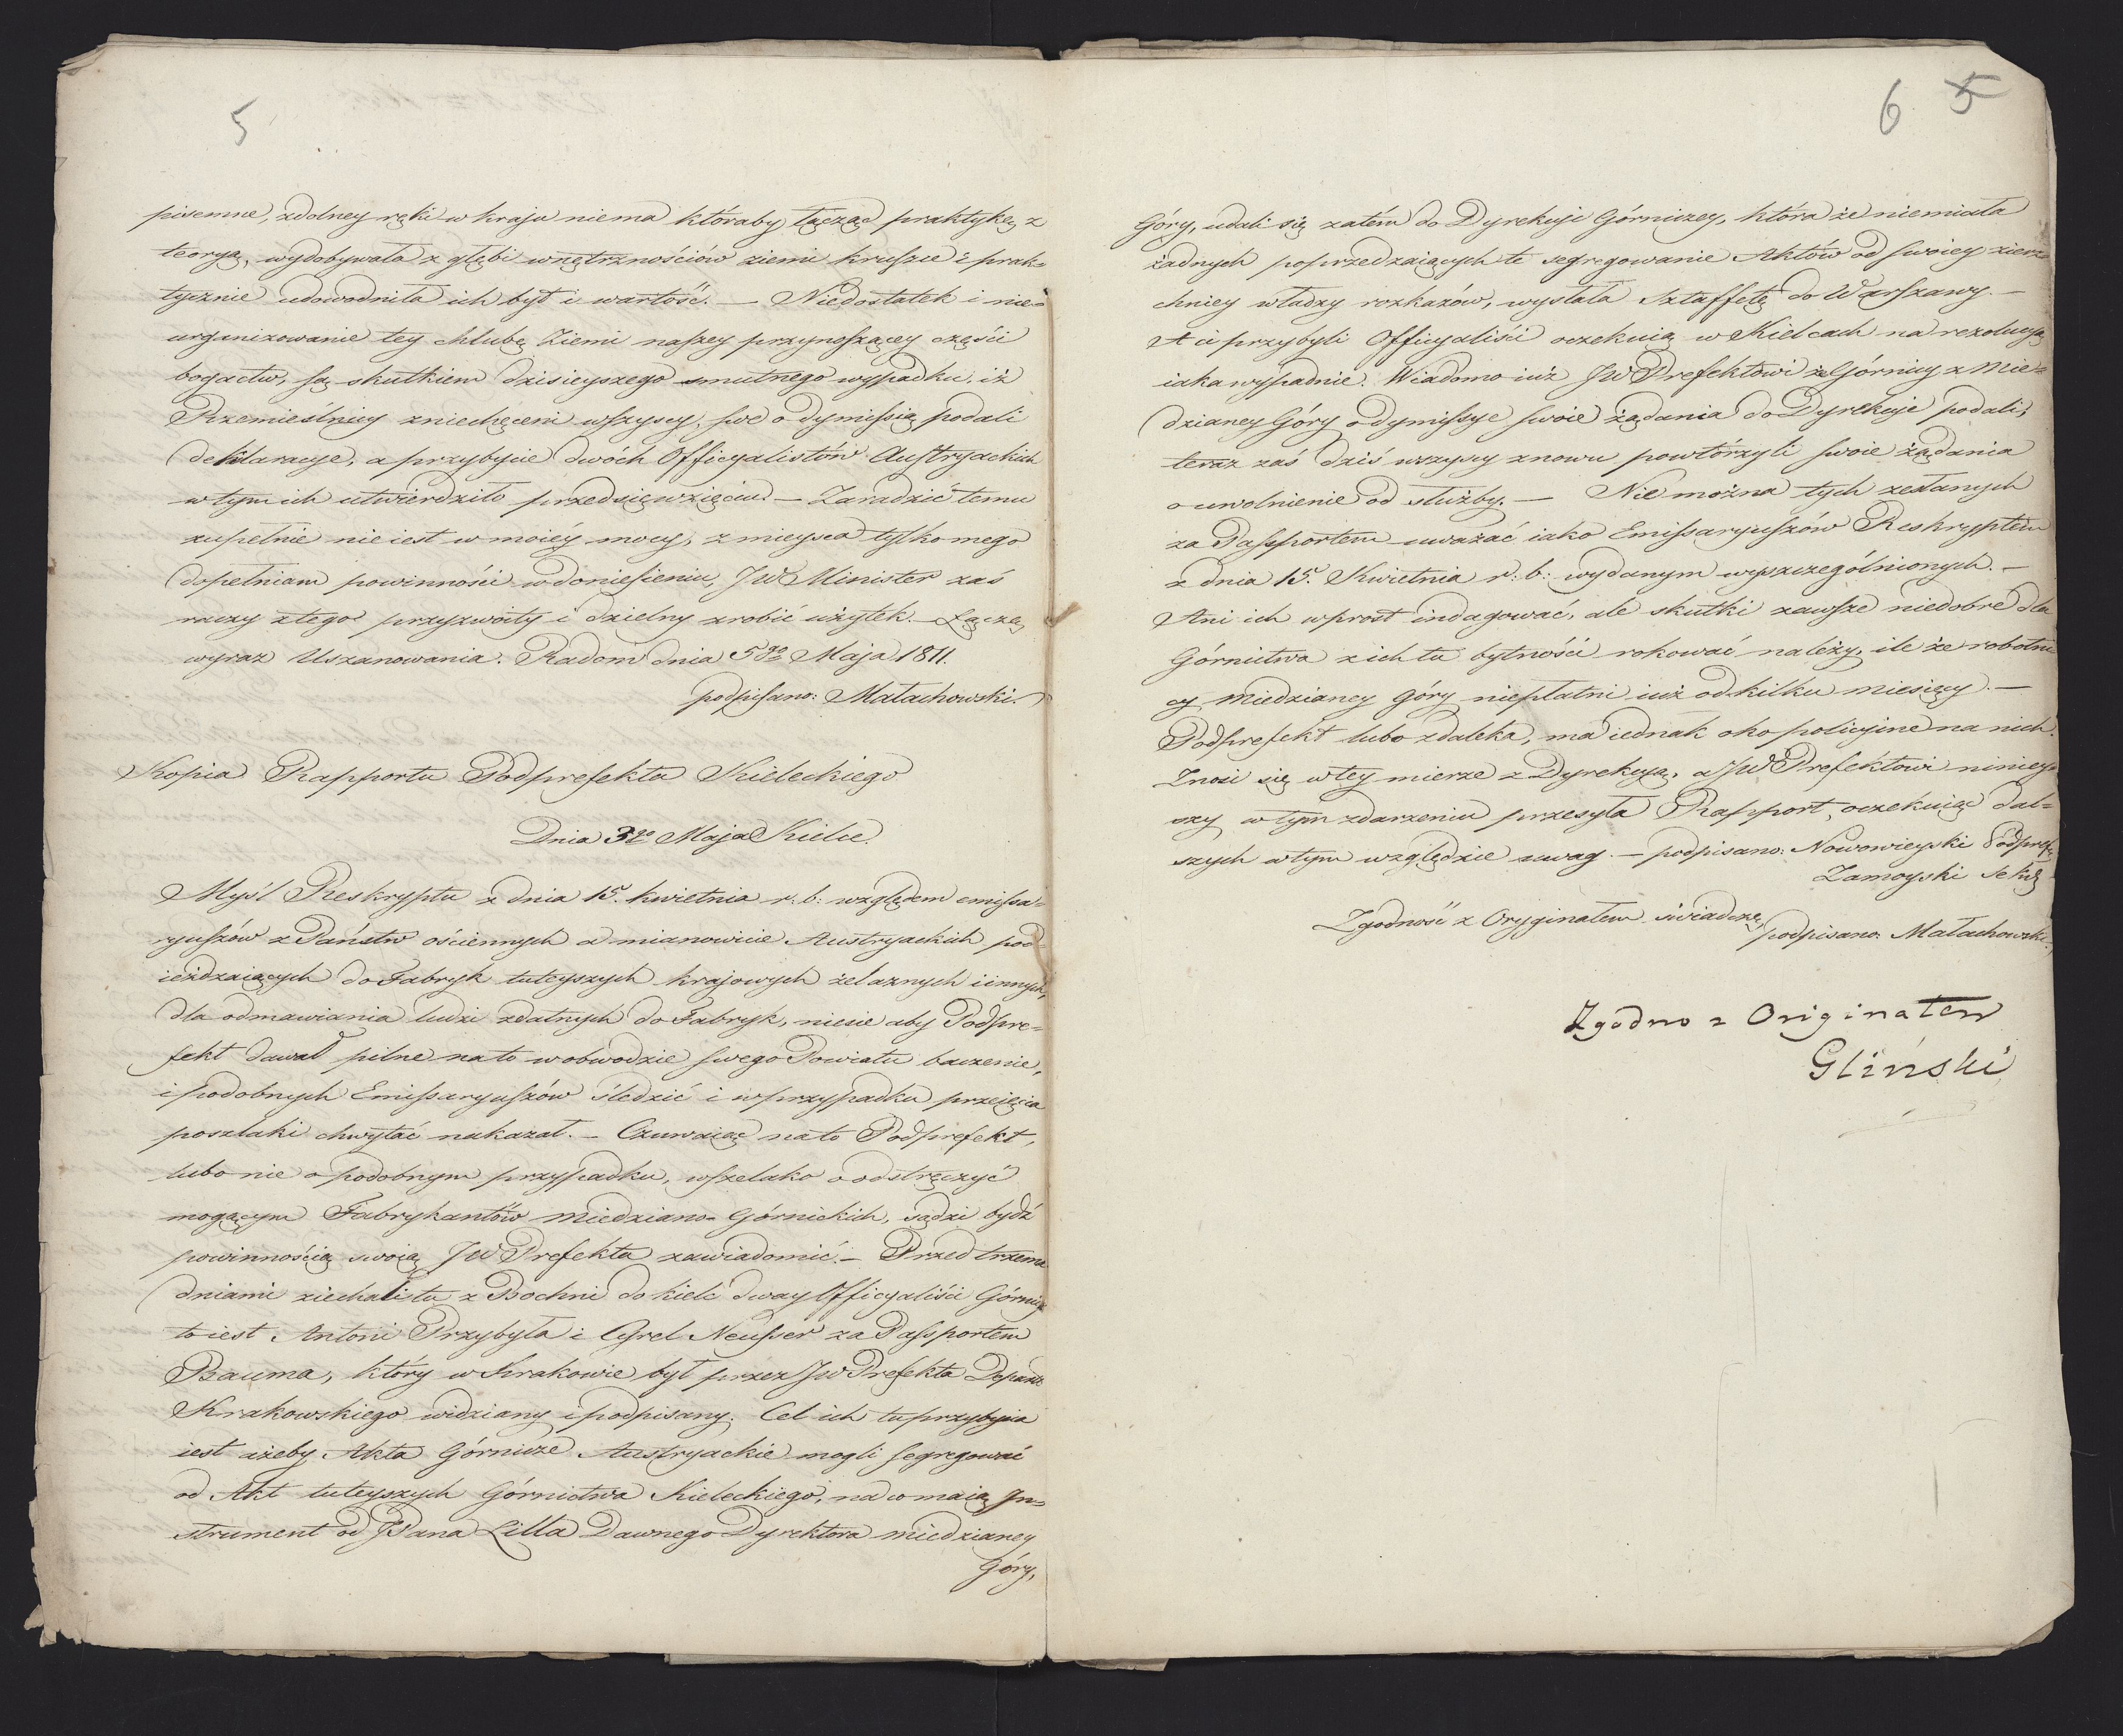 5
pisemne, zdolney ręki w kraju niema któraby łącząc praktykę z
teoryą, wydobywała z głębi wnętrznościów ziemi kruszce i prak=
tycznie udowodniła ich byt i wartość. — Niedostatek i nie=
urganizowanie tey chlubę Ziemi naszey przynoszącey części
bogactw, są skutkiem dzisieyszego smutnego wypadku, iż
Rzemieślnicy zniechęceni wszyscy, swe o dymissią podali
deklaracye, a przybycie dwóch Officyalistów Austryackich
w tym ich utwierdziło przedsięwzięciu. — Zaradzić temu
zupełnie nie iest w moiéy mocy, z mieysca tylko mego
dopełniam powinności w doniesieniu, JW Minister zaś
raczy z tego przyzwoity i dzielny zrobić użytek. — Łączę
wyraz Uszanowania. Radom dnia 5go Maja 1811.
podpisano: Małachowski.
Kopia Rapportu Podprefekta Kieleckiego
Dnia 3go Maja Kielce.
Myśl Reskryptu z dnia 15. kwietnia r. b: względem emissa=
ryuszów z Państw ościennych a mianowicie Austryackich pod
ieżdzaiących do Fabryk tuteyszych krajowych żelaznych i innych,
dla odmawiania ludzi zdatnych do Fabryk, niesie aby Podpre=
fekt dawał pilne na to w obwodzie swego Powiatu baczenie,
i podobnych Emissaryuszów śledzić i w przypadku przeięcia
poszlaki chwytać nakazał. — Czuwaiąc na to Podprefekt,
lubo nie o podobnym przypadku, wszelako o odstręczyć
mogącym Fabrykantów miedziano-Górnickich, sądzi bydź
powinnością swoią JW Prefekta zawiadomić. — Przed trzema
dniami ziechali tu z Bochni do kielc dway Officyaliści Górniczy
to iest Antoni Przybyła i Neusser za Passportem
Bauma, który w Krakowie był przez JW Prefekta Depart
Krakowskiego widziany i podpisany. Cel ich tu przybycia
iest ażeby Akta Górnicze Austryackie mogli segregować
od Akt tuteyszych Górnictwa Kieleckiego, na co maią In=
strument od JPana Lilla Dawnego Dyrektora miedzianey
Góry,
6 5
Góry, udali się zatém do Dyrekcyi Górniczey, która że niemiała
żadnych poprzedzaiących te segregowanie Aktów od swoiey zierz=
chniey władzy rozkazów, wysłała Sztaffetę do Warszawy. —
A ci przybyli Officyaliści oczekuią w Kielcach na rezolucyą
iaka wypadnie. Wiadomo iuż JW Prefektowi że Górnicy z Mie=
dzianey Góry o dymissye swoie żądania do Dyrekcyi podali,
teraz zaś dziś wszyscy znowu powtórzyli swoie żądania
o uwolnienie od służby. — Nie można tych zesłanych
za Passportem uważać iako Emissaryuszów Reskryptem
z dnia 15. Kwietnia r: b: wydanym wyszczególnionych. —
Ani ich wprost indagować, ale skutki zawsze niedobre dla
Górnictwa z ich tu bytności rokować należy, ile że robotni
cy Miedzianey Góry niepłatni iuż od kilku miesięcy. —
Podprefekt lubo zdaleka, ma iednak oko policyine na nich.
Znosi się w tey mierze z Dyrekcyą, a JW Prefektowi ninieys
szy w tym zdarzeniu przesyła Rapport, oczekuiąc dal=
szych w tym względzie uwag. — podpisano: Nowowieyski Podprefe
Zamoyski Sekr
Zgodność z Oryginałem świadczę, podpisano: Małachowski.
Zgodno z Originałem
Gliński